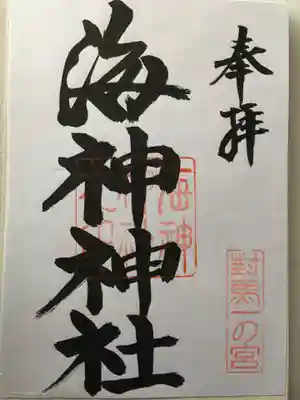 奉拝
對馬一の宮
海神神社
海神